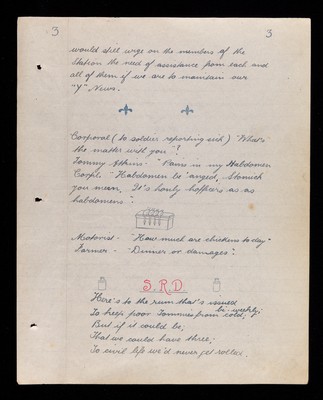 3 3
would still urge on the members of the
Station the need of assistance from each and
all of them if we are to maintain our
"Y" News.
Corporal (to soldier reporting sick) "What's
the matter with you"?
Tommy Atkins - "Pains in my Habdomen
Corpl. - "Habdomen be 'anged, Stomick
you mean, It's honly hofficers as as
habdomens".
Motorist - "How much are chickens to-day"
Farmer - "Dinner or damages".
S.R.D.
Here's to the rum that's issued
bi-weekly;
To keep poor Tommies from cold;
But if it could be;
That we could have three;
To civil life we'd never get rolled.